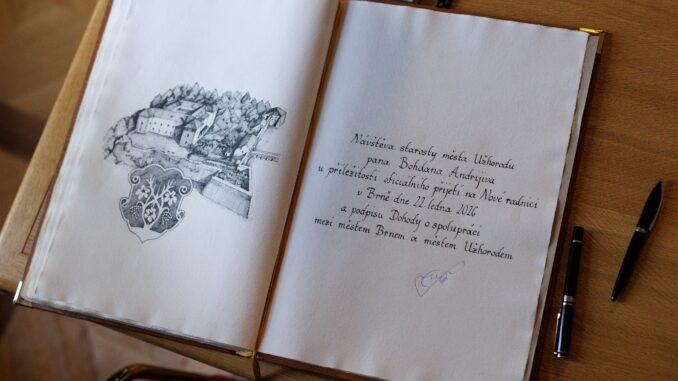 Návštěva starosty města Užhorodu
pana Bohdana Andrijiva
u příležitosti oficiálního přijetí na Nové radnici
v Brně dne 22 ledna 2026
a podpisu Dohody o spolupráci
mezi městem Brnem a městem Užhorodem